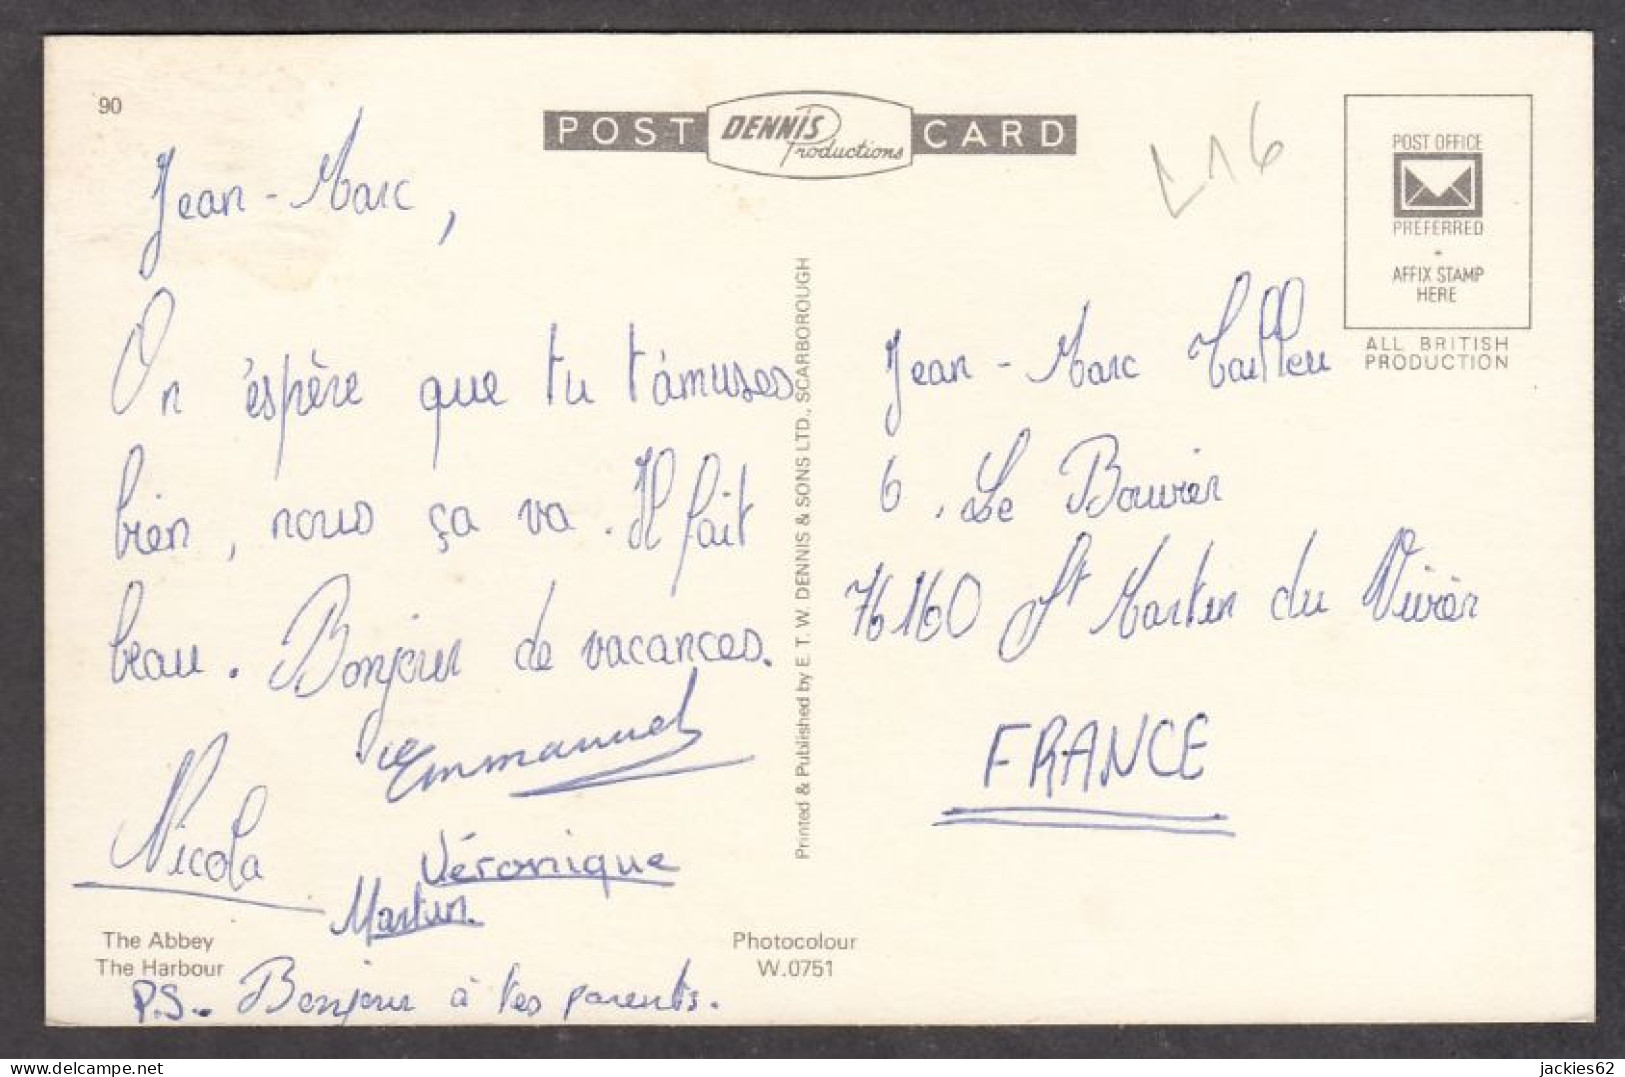 90
POST DENNIS Productions CARD
L16
POST OFFICE
PREFERRED
AFFIX STAMP
HERE
ALL BRITISH
PRODUCTION
Jean-Marc,
On éspère que tu t'amuses
bien, nous ça va. Il fait
beau. Bonjour de vacances.
Emmanuel
Nicola
Véronique
Martin
The Abbey
The Harbour
P.S.. Bonjour à tes parents.
Photocolour
W.0751
Printed & Published by E. T. W. DENNIS & SONS LTD., SCARBOROUGH
Jean-Marc
6, Le Bouvier
76160 St Martin du Vivier
FRANCE
delcampe.net
jackies62